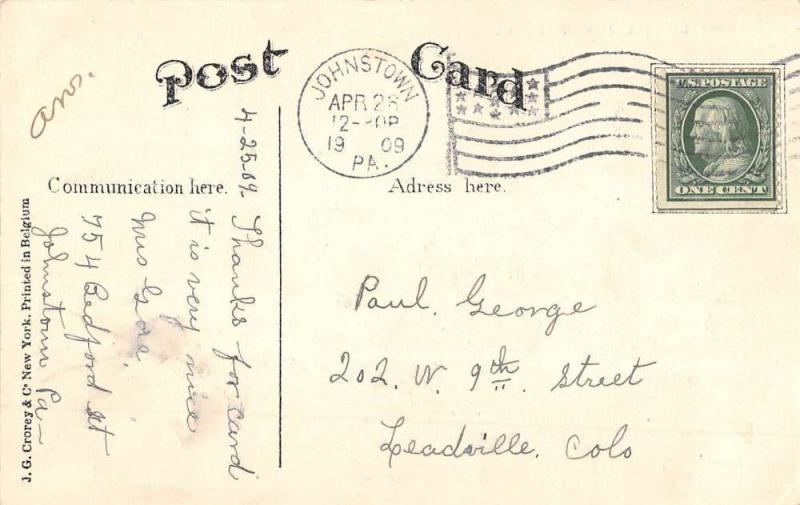 ans.
Post Card
JOHNSTOWN
APR 26
12-30P
19 09
PA.
U.S. POSTAGE
ONE CENT
Communication here.
Adress here.
4-25-09.
Thanks for card
it is very nice
Mrs
754 Bedford St
Johnstown Pa
Paul. George
202. W. 9th. Street
Leadville. Colo
J. G. Crorey & Co New York. Printed in Belgium